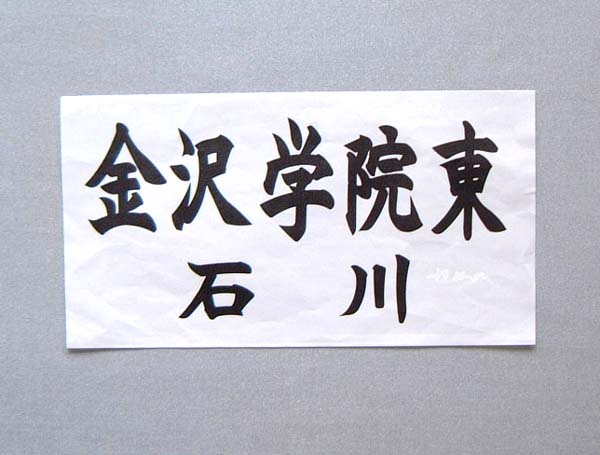 金沢学院東
石川